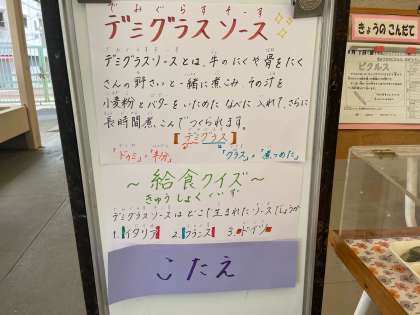 でみぐらすそーす
デミグラスソース
デミグラスソースとは、牛のにくや骨をたく
さんの野さいと一緒に煮こみ、その汁を
小麦粉とバターをいためたなべに入れ、さらに
長時間煮こんでつくられます。
【デミグラス】
「ドゥミ」・「半分」 「グラス」・「煮つめた」
～給食クイズ～
きゅうしょくくいず
デミグラスソースはどこで生まれたソースでしょうか
1.イタリア 2.フランス 3.ドイツ
こたえ
きょうのこんだて
ピクルス